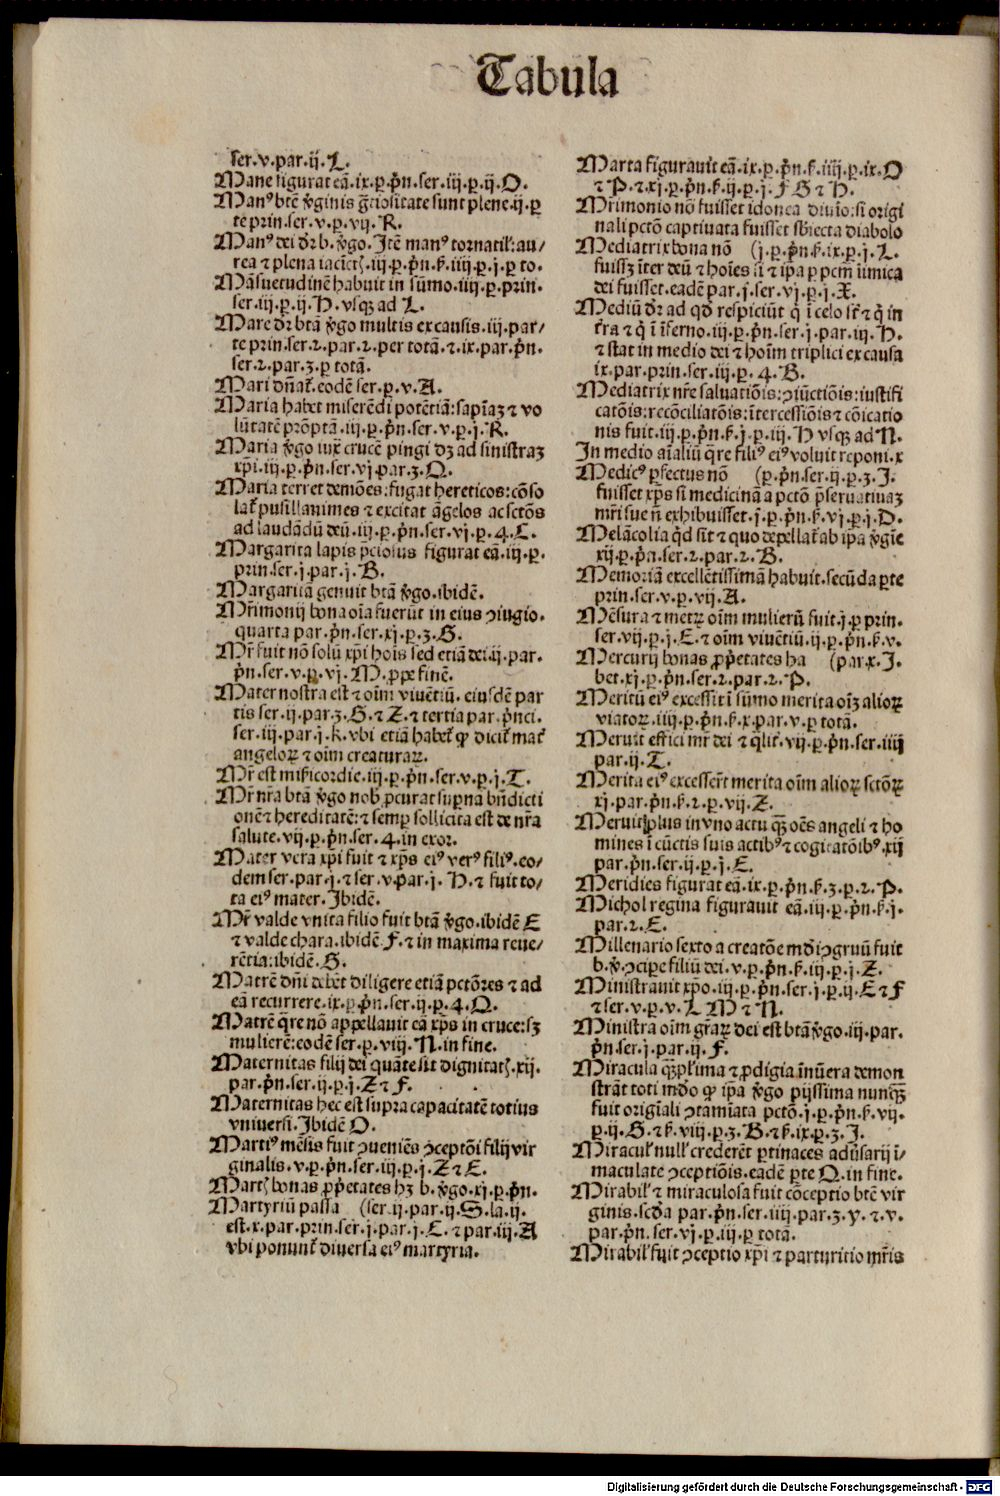 Tabula
ser.v.par.ij.L.
Mane figurat eā.ix.p̱.p̄n.ser.iij.p̱.ij.O.
Manꝰ btē v̄ginis gr̄ciositate sunt plene.ij.p̱
te prin.ser.v.p̱.vij.R.
Manꝰ dei dr̄ b.v̄go.Itē manꝰ tornatil̓:au/
rea ⁊ plena iacīctꝭ.iij.p̱.p̄n.ẜ.iiij.p̱.j.p̱ to.
Māsuetudinē habuit in sūmo.iiij.p̱.prin.
ser.iij.p̱.ij.H.vsqꝫ ad L.
Mare dr̄ btā v̄go multis ex causis.iij.par/
te prin.ser.2.par.2.per totā.⁊.ix.par.p̄n.
ser.2.par.3.p̱ totā.
Mari dn̄at̄.eodē ser.p̱.v.A.
Maria habet miserēdi potētiā:sapīaꝫ ⁊ vo
lūtatē prōptā.iij.p̱.p̄n.ser.v.p̱.j.R.
Maria v̄go iux̄ crucē pingi dꝫ ad sinistraꝫ
xp̄i.iij.p̱.p̄n.ser.vj.par.3.Q.
Maria terret demōes:fugat hereticos:cōso
lat̄ pusillanimes ⁊ excitat āgelos ac sctōs
ad laudādū deū.iij.p̱.p̄n.ser.vj.p̱.4.C.
Margarita lapis p̄ciosus figurat eā.iij.p̱.
prin.ser.j.par.j.B.
Margaritā genuit btā v̄go.ibidē.
Mr̄imonij bona oīa fuerūt in eius ꝯiugio.
quarta par.p̄n.ser.xj.p̱.3.G.
Mr̄ fuit nō solū xp̄i hoīs sed etiā dei.ij.par.
p̄n.ser.v.p̱.vj.M.ꝓpe finē.
Mater nostra est ⁊ oīm viuētiū.eiusdē par
tis ser.ij.par.3.G.⁊ Z.⁊ tertia par.p̄nci.
ser.iij.par.j.K.vbi etiā habet̄ ꝙ dicit̄ mat̄
angeloꝝ ⁊ oīm creaturaꝝ.
Mr̄ est mīsericordie.iij.p̱.p̄n.ser.v.p̱.j.T.
Mr̄ nr̄a btā v̄go nob̓ ꝓcurat supna bn̄dicti
onē ⁊ hereditatē:⁊ semp̱ sollicita est de nr̄a
salute.vij.p̱.p̄n.ser.4.in exor.
Mater vera xp̄i fuit ⁊ xp̄s eiꝰ verꝰ filiꝰ.eo/
dem ser.par.j.⁊ ser.v.par.j.H.⁊ fuit to/
ta eiꝰ mater.Ibidē.
Mr̄ valde vnita filio fuit btā v̄go.ibidē E
⁊ valde chara.ibidē.F.⁊ in maxima reue/
rētia:ibidē.G.
Matrē dn̄i debēt diligere etiā pctōres ⁊ ad
eā recurrere.ix.p̱.p̄n.ser.ij.p̱.4.Q.
Matrē q̄re nō appellauit eā xp̄s in cruce:sꝫ
mulierē:eodē ser.p̱.viij.N.in fine.
Maternitas filij dei quāte sit dignitatꝭ.xij.
par.p̄n.ser.ij.p̱.j.Z ⁊ F.
Maternitas hec est supra capacitatē totius
vniuersi.Ibidē O.
Martiꝰ mēsis fuit ꝯueniēs ꝯceptōi filij vir
ginalis.v.p̱.p̄n.ser.iij.p̱.j.Z ⁊ E.
Martꝭ bonas ꝓp̱etates hꝫ b.v̄go.xj.p̱.p̄n.
Martyriū passa (ser.ij.par.ij.S.la.ij.
est.x.par.prin.ser.j.par.j.C.⁊ par.iij.A
vbi ponunt̄ diuersa eiꝰ martyria.
Marta figurauit eā.ix.p̱.p̄n.ẜ.iiij.p̱.ix.O
⁊ P.⁊ xj.p̱.p̄n.ẜ.ij.p̱.j.F G ⁊ H.
Mr̄imonio nō fuisset idonea diuīo:si origi
nali pctō captiuata fuisset sbiecta diabolo
Mediatrix bona nō (j.p̱.p̄n.ẜ.ix.p̱.j.L.
fuissꝫ īter deū ⁊ hoīes si ⁊ ip̄a p̱ pcm̄ iimica
dei fuisset.eadē par.j.ser.vj.p̱.j.X.
Mediū dr̄ ad qd̄ respiciūt q̄ i celo st̄ ⁊ q̄ in
t̄ra ⁊ q̄ ī īferno.iij.p̱.p̄n.ser.j.par.iij.H.
⁊ stat in medio dei ⁊ hoīm triplici ex causa
ix.par.prin.ser.iij.p̱.4.B.
Mediatrix nr̄e saluatiōis:ꝯiūctiōis:iustifi
catōis:recōciliatōis:ītercessiōis ⁊ cōicatio
nis fuit.iij.p̱.p̄n.ẜ.j.p̱.iij.H vsqꝫ ad N.
In medio aīaliū q̄re filiꝰ eiꝰ voluit reponi.x
Medicꝰ ꝑfectus nō (p̱.p̄n.ser.ij.p̱.3.I.
fuisset xp̄s si medicinā a pctō p̄seruatiuaꝫ
mr̄i sue n̄ exhibuisset.j.p̱.p̄n.ẜ.vj.p̱.j.D.
Melācolia qd̄ sit ⁊ quo depellat̄ ab ip̄a v̄gīe
xij.p̱.p̄n.ser.2.par.2.B.
Memoriā excellētissimā habuit.secūda ꝑte
prin.ser.v.p̱.vij.A.
Mēsura ⁊ metꝝ oīm mulierū fuit.j.p̱ prin.
ser.vij.p̱.j.E.⁊ oīm viuētiū.ij.p̱.p̄n.ẜ.v.
Mercurij bonas ꝓp̱etates ha (par.x.I.
bet.xj.p̱.p̄n.ser.2.par.2.P.
Meritū eiꝰ excessit ī sūmo merita oīꝫ alioꝝ
viatoꝝ.iiij.p̱.p̄n.ẜ.x.par.v.p̱ totā.
Meruit effici mr̄ dei ⁊ q̄lit̄.vij.p̱.p̄n.ser.iiij
par.ij.T.
Merita eiꝰ excesser̄t merita oīm alioꝝ sctōꝝ
xj.par.p̄n.ẜ.2.p̱.vij.Z.
Meruit plus in vno actu qꝫ oēs angeli ⁊ ho
mines ī cūctis suis actibꝰ ⁊ cogitatōibꝰ.xij
par.p̄n.ser.ij.p̱.j.E.
Meridies figurat eā.ix.p̱.p̄n.ẜ.3.p̱.2.P.
Michol regina figurauit eā.iij.p̱.p̄n.ẜ.j.
par.2.E.
Millenario sexto a creatōe mdī ꝯgruū fuit
b.v̄.ꝯcipe filiū dei.v.p̱.p̄n.ẜ.iij.p̱.j.Z.
Ministrauit xp̄o.iij.p̱.p̄n.ser.j.p̱.ij.E ⁊ F
⁊ ser.v.p̱.v.L M ⁊ N.
Ministra oīm gr̄aꝝ dei est btā v̄go.iij.par.
p̄n.ser.j.par.ij.F.
Miracula qꝫpl̓ima ⁊ ꝓdigia īnūera demon
strāt toti mdo ꝙ ip̄a v̄go pijssima nunqꝫ
fuit origīali ꝯtamīata pctō.j.p̱.p̄n.ẜ.vij.
p̱.ij.G.⁊ ẜ.viij.p̱.3.B.⁊ ẜ.ix.p̱.3.I.
Miracul̓ null̓ crederēt ꝑtinaces aduersarij ī/
maculate ꝯceptiōis.eadē ꝑte Q.in fine.
Mirabil̓ ⁊ miraculosa fuit cōceptio btē vir
ginis.scd̄a par.p̄n.ser.iiij.par.3.y.⁊.v.
par.p̄n.ser.vj.p̱.iij.p̱ totā.
Mirabil̓ fuit ꝯceptio xp̄i ⁊ parturitio mr̄is
Digitalisierung gefördert durch die Deutsche Forschungsgemeinschaft - DFG